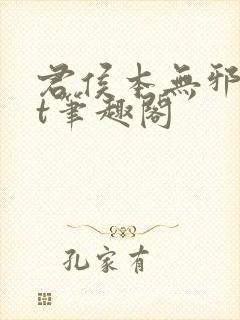 君侯本無邪
t筆趣閣
孔家有